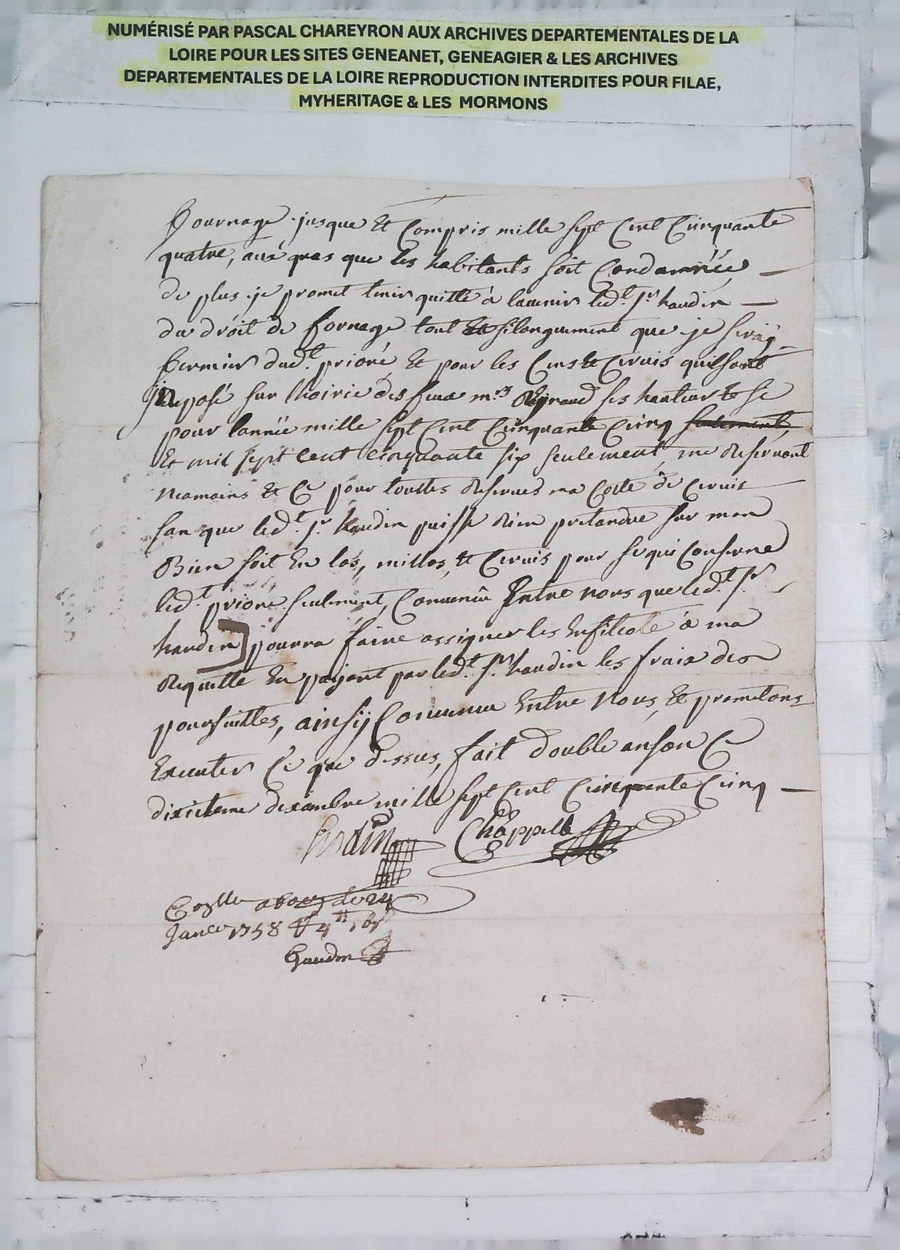 NUMÉRISÉ PAR PASCAL CHAREYRON AUX ARCHIVES DEPARTEMENTALES DE LA
LOIRE POUR LES SITES GENEANET, GENEAGIER & LES ARCHIVES
DEPARTEMENTALES DE LA LOIRE REPRODUCTION INTERDITES POUR FILAE,
MYHERITAGE & LES MORMONS
fournage jusque Et Compris mille sept Cent Cinquante
quatre, au que les habitants soit Condamnée
de plus je promet tenir quitte à lavenir led.t s.r haudin
du dróit de fornage tout silonguement que je seray
fermier dud.t prioré Et pour les Cens & quilsont
jmposé sur lhoirie des feux ses
pour lannée mille sept Cent Cinquante Cinq seulement,
Et mil sept cent cinquante six seulement, me Reservant
neamoins & Ce pour touttes Reserves ma Cotte de
san que led.t s.r haudin puisse Rien pretandre sur mon
Bien soit En & pour se qui Conserne
led.t prioré seulement, Convenû Entre nous que led.t s.r
haudin pourra faire assigner les à ma
Requette En payant par led.t s.r haudin les fraix des
poursuittes, ainsÿ Convenu Entre Nous, & prometons
Executer Ce que dessus, fait double anson Ce
dixieme dexambre mille sept Cent Cinquante Cinq
Chappelle
Janer 1758